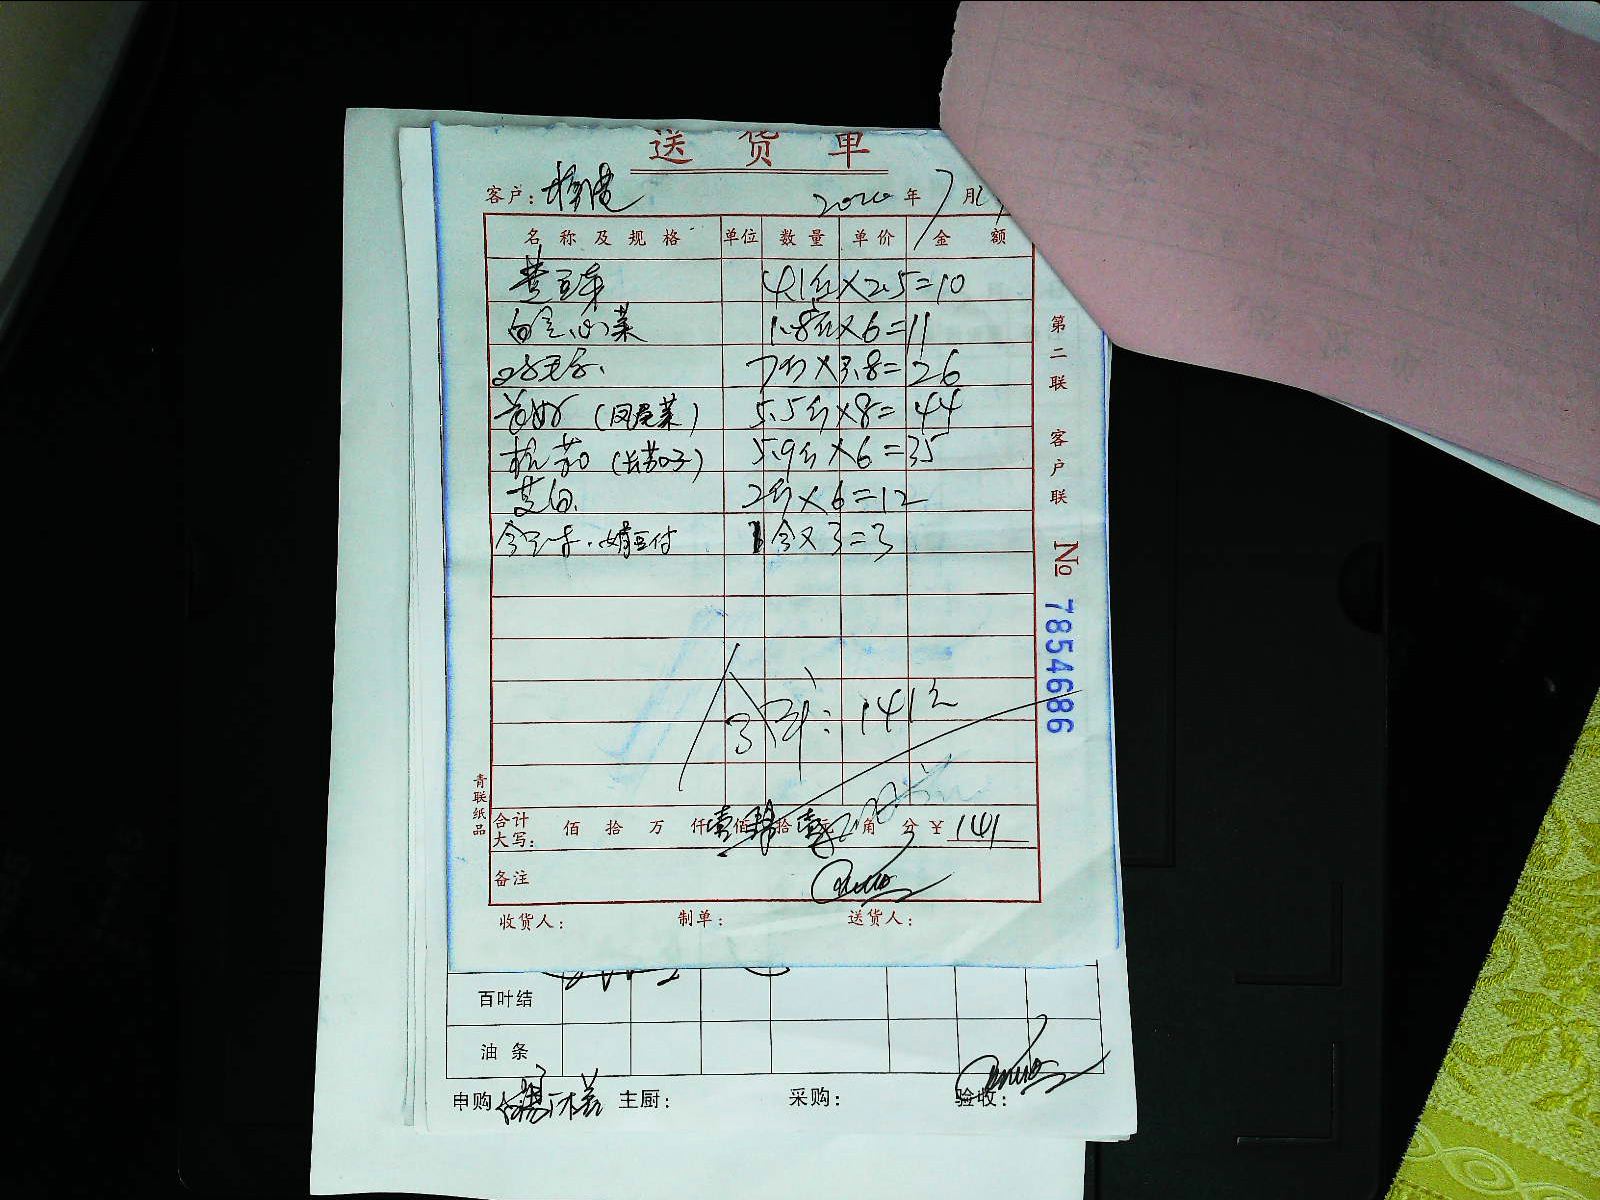 送货单
客户: 2020年7月
名称及规格 单位 数量 单价 金额
黄豆芽 4.1斤×2.5=10
白 菜 1.8斤×6=11
7斤×3.8=26
(凤尾菜) 5.5斤×8=44
杭茄(长茄子) 5.9斤×6=35
茭白 2斤×6=12
豆付 1合×3=3
合计: 141元
合计大写: 佰 拾 万 仟 壹佰 肆拾 壹元 角 分 ¥ 141
备注
收货人: 制单: 送货人:
第二联 客户联
№ 7854686
青联纸品
百叶结
油条
申购: 主厨: 采购: 验收: